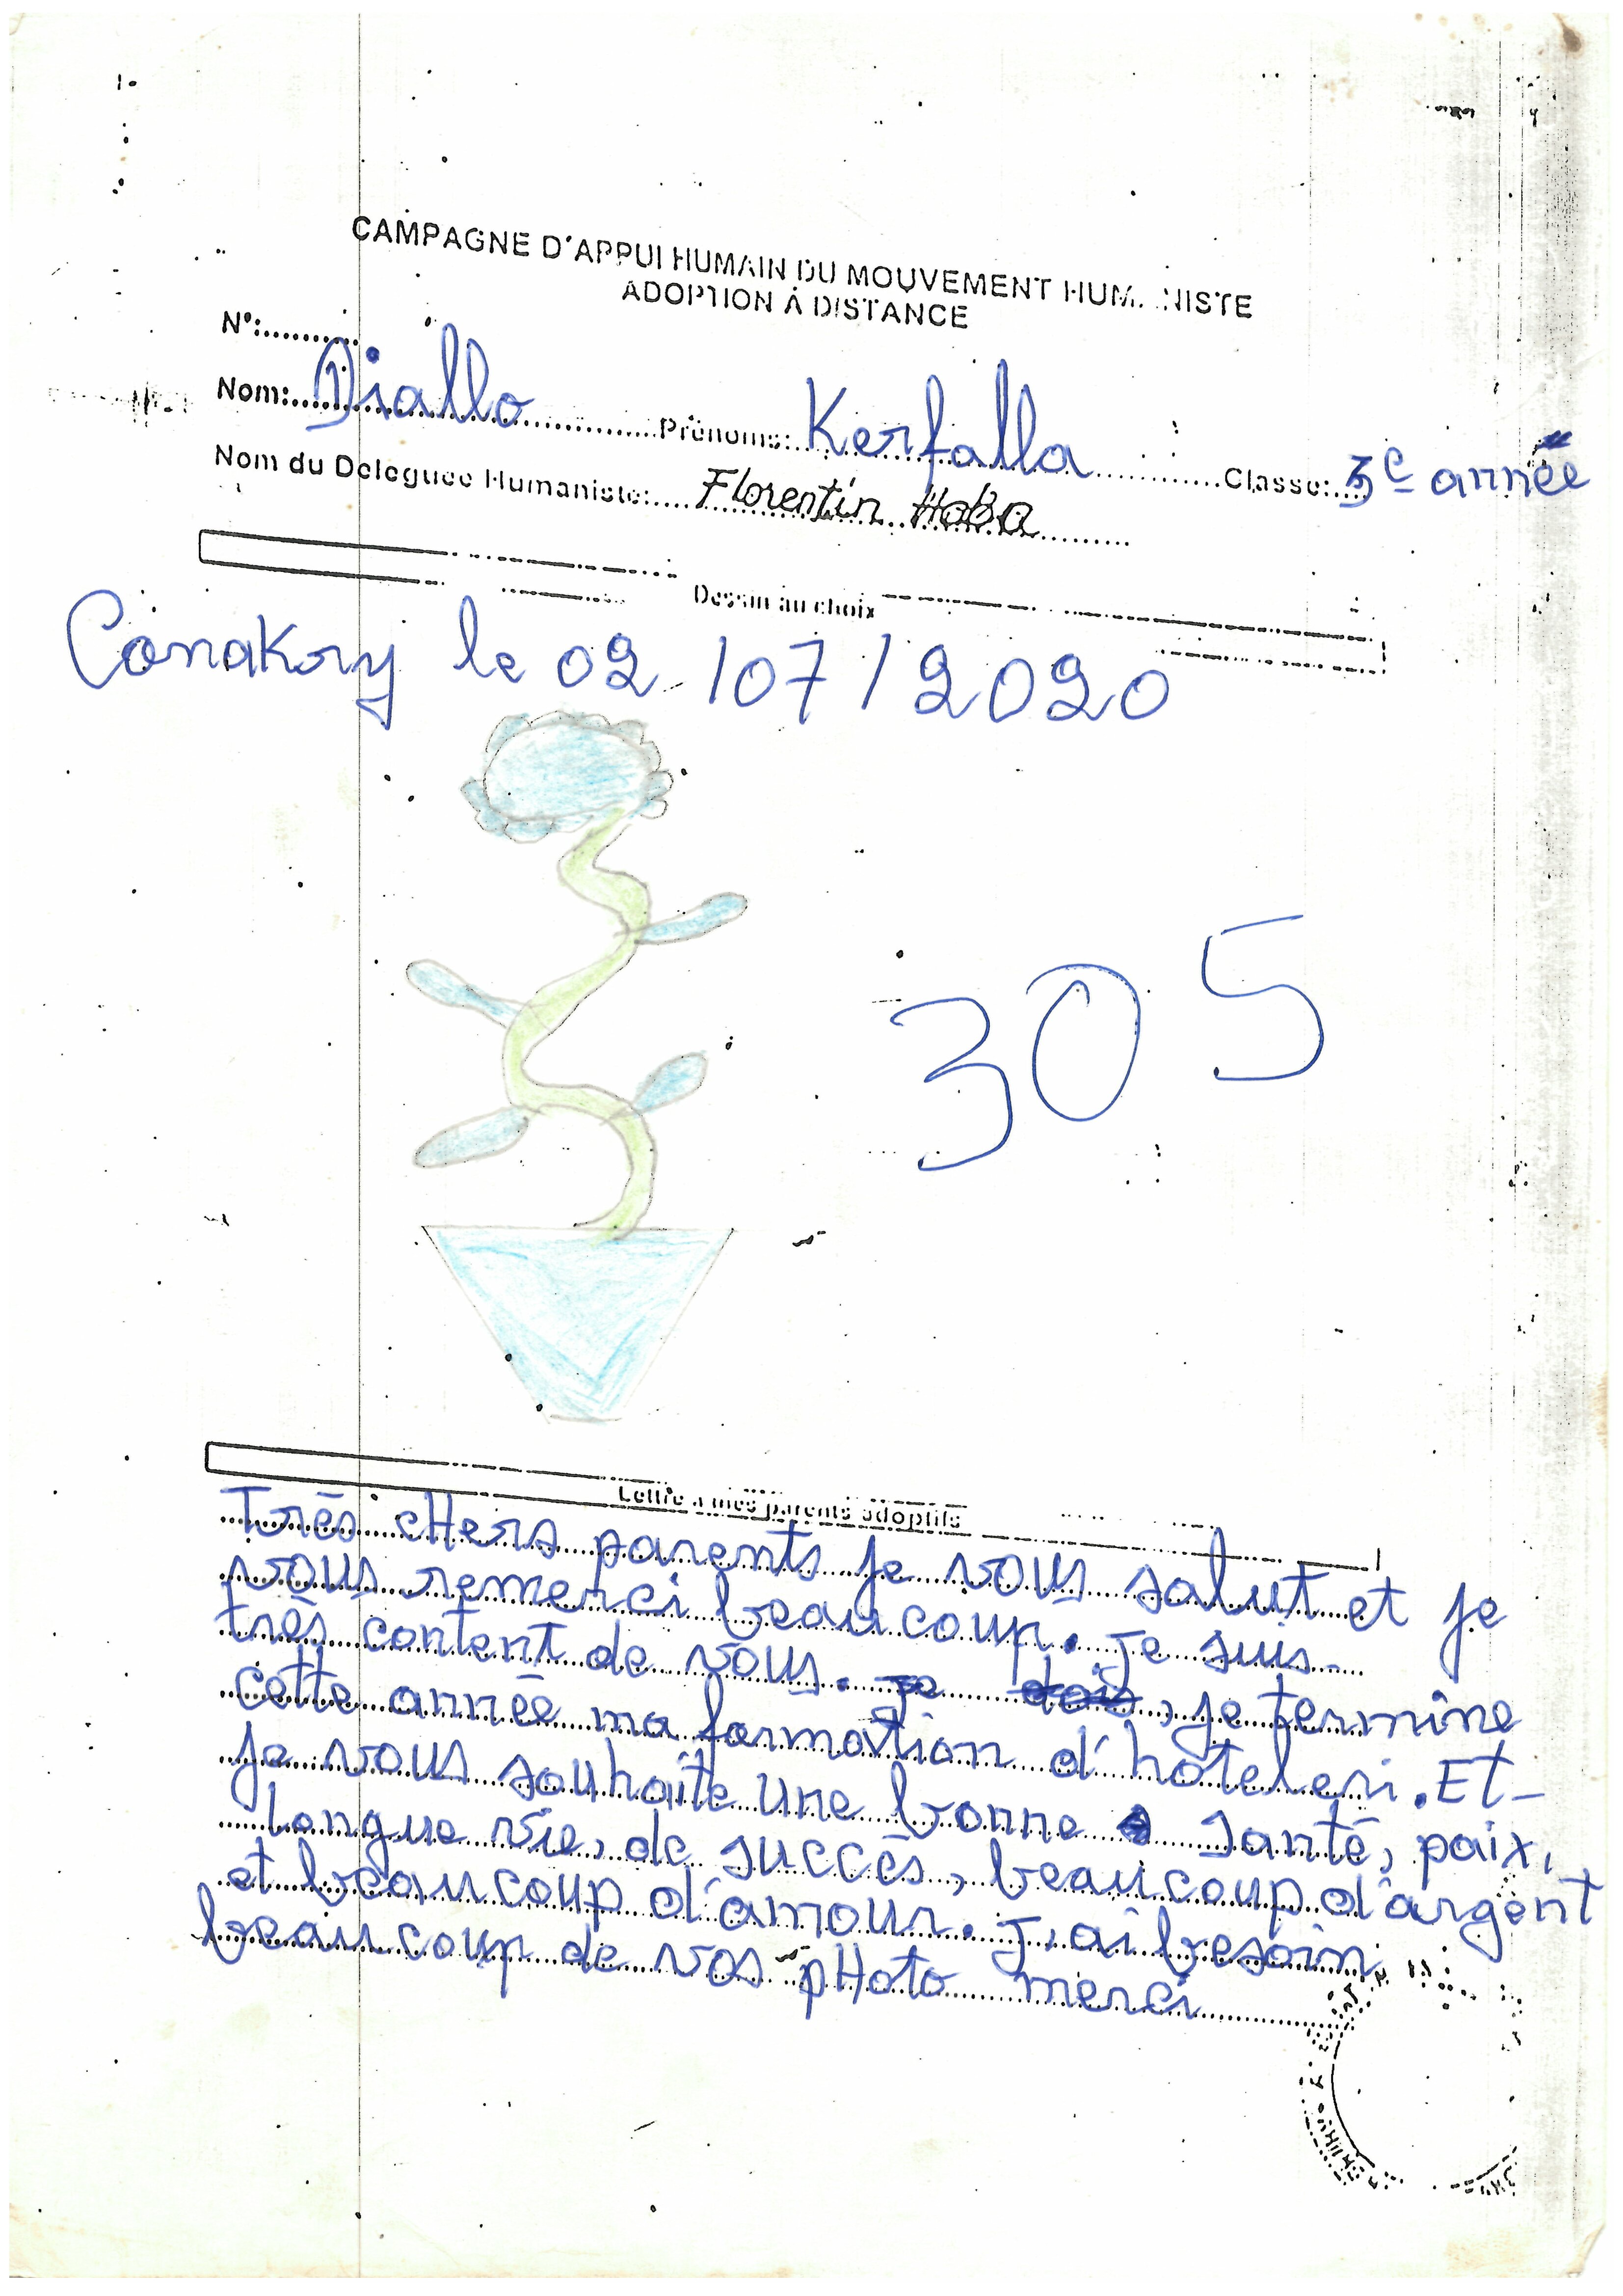 CAMPAGNE D'APPUI HUMAIN DU MOUVEMENT HUM. NISTE
ADOPTION À DISTANCE
N°:..........
Nom: Diallo Prénoms: Kerfalla Classe: 3e année
Nom du Deleguée Humaniste: Florentin Haba
Dessin au choix
Conakry le 02/07/2020
305
Lettre a mes parents adoptifs
Très cHers parents je vous salut et je
vous remerci beaucoup. je suis
très content de vous. je dois, je termine
cette année ma formation d'hôteleri. Et
je vous souhaite une bonne santé, paix,
longue vie, de succès, beaucoup d'argent
et beaucoup d'amour. J'ai besoin
beaucoup de vos pHoto merci